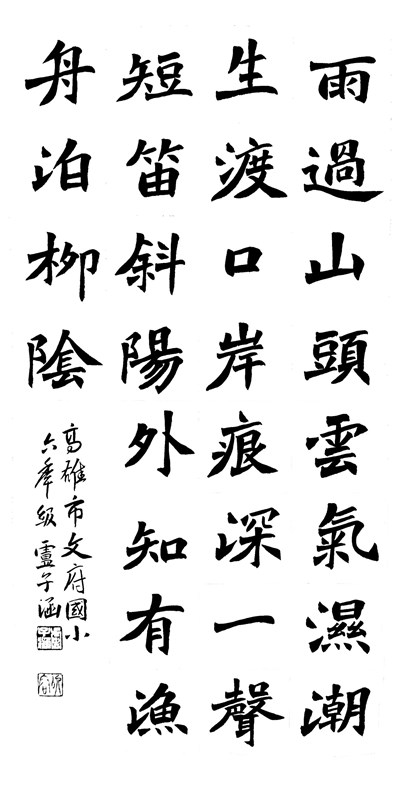 雨過山頭雲氣濕潮
生渡口岸痕深一聲
短笛斜陽外知有漁
舟泊柳陰
高雄市文府國小
六年級盧子涵